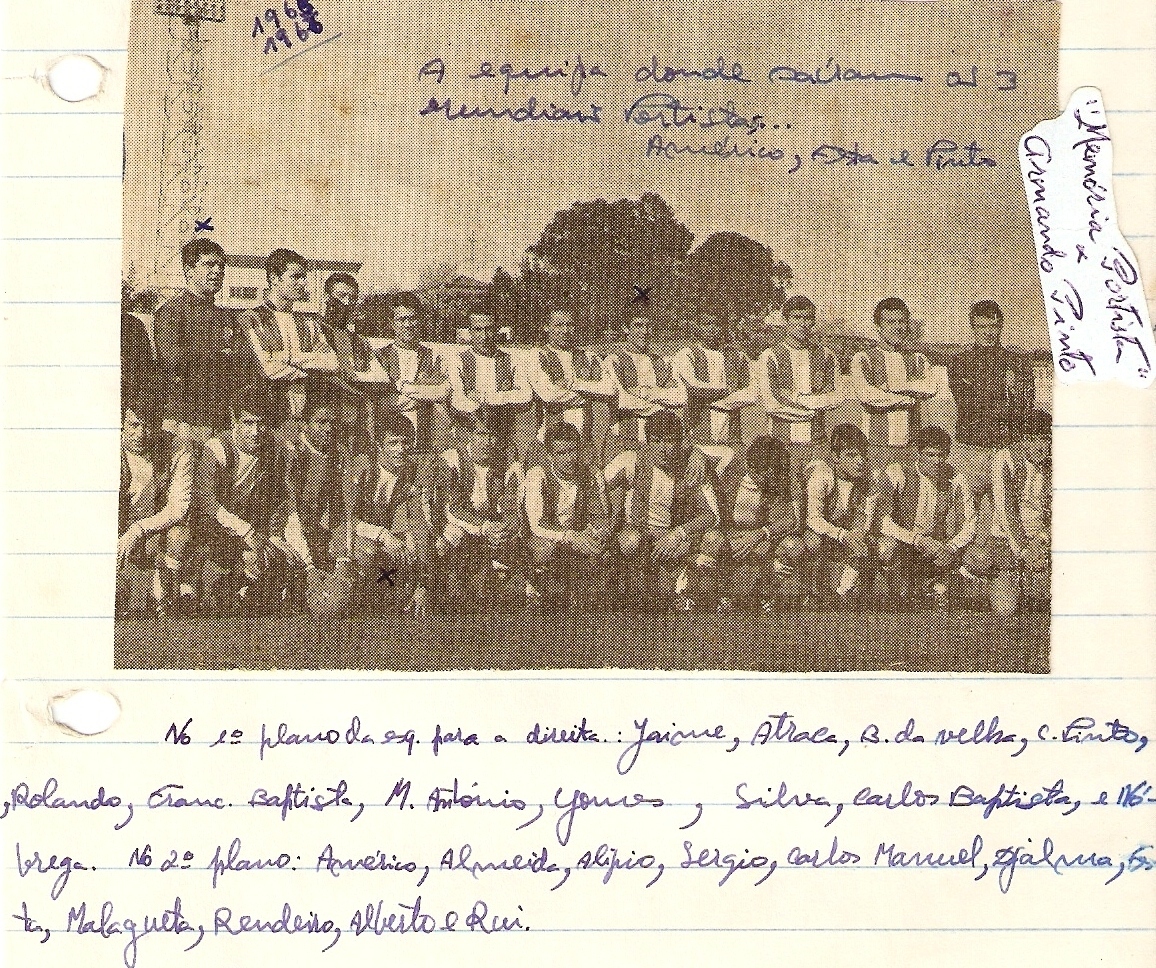 1965
1966
A equipa donde saíram os 3
Mundiais Portistas...
Américo, Festa e Pinto
"Memória Portista"
x
Armando Pinto
No 1º plano da esq. para a direita.: Jaime, Atraca, B. da velha, C. Pinto,
,Rolando, Franc. Baptista, M. António, Gomes, Silva, Carlos Baptista, e Nó-
brega. No 2º plano: Américo, Almeida, Alípio, Sergio, Carlos Manuel, Djalma, Fes-
ta, Malagueta, Rendeiro, Alberto e Rui.